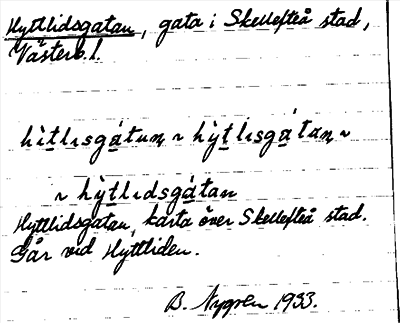 Hyttlidsgatan, gata i Skellefteå stad,
Västerb.l.
hìtlısgátan ~ hỳtlısgátan ~
~ hỳtlıdsgátan
Hyttlidsgatan, karta över Skellefteå stad.
Går vid Hyttliden.
B. Nygren 1933.